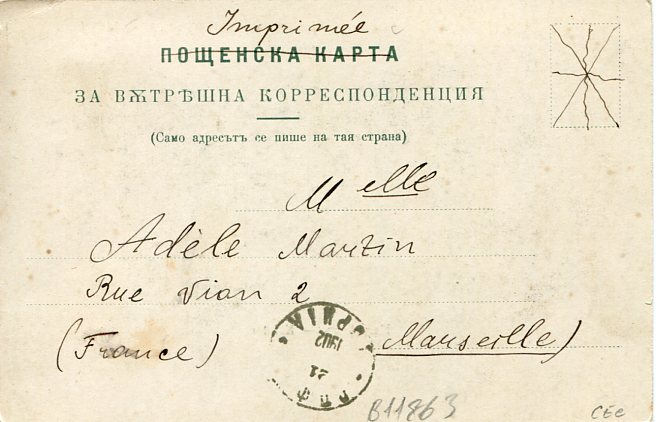 Imprimée
ПОЩЕНСКА КАРТА
ЗА ВѪТРѢШНА КОРРЕСПОНДЕНЦИЯ
(Само адресътъ се пише на тая страна)
Melle
Adèle Martin
Rue Vian 2
Marseille)
(France)
1902
B11863
CEC